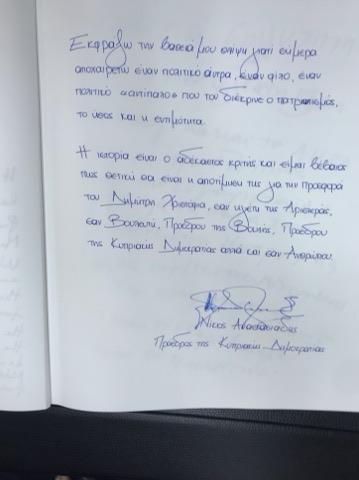 Εκφράζω την βαθειά μου θλίψη γιατί σήμερα
αποχαιρετώ έναν πολιτικό άντρα, έναν φίλο, έναν
πολιτικό «αντίπαλο» που τον διέκρινε ο πατριωτισμός,
το ήθος και η εντιμότητα.
Η ιστορία είναι ο αδέκαστος κριτής και είμαι βέβαιος
πως θετική θα είναι η αποτίμηση της για την προσφορά
του Δημήτρη Χριστόφια, σαν ηγέτη της Αριστεράς,
σαν Βουλευτή, Προέδρου της Βουλής, Προέδρου
της Κυπριακής Δημοκρατίας αλλά και σαν Ανθρώπου.
Νίκος Αναστασιάδης
Πρόεδρος της Κυπριακής Δημοκρατίας